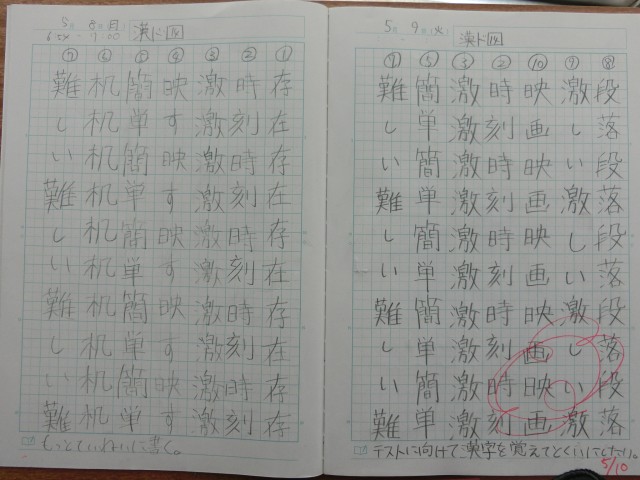 5月 8日(月)
6:50~7:00
漢ド
①存在存在存在存在存在
②時刻時刻時刻時刻時刻
③激激激激激激激激激激
④映す映す映す映す映す
⑤簡単簡単簡単簡単簡単
⑥机机机机机机机机机机
⑦難しい難しい難しい難
もっとていねいに書く。
5月 9日(火)
漢ド
⑧段落段落段落段落段落
⑨激しい激しい激しい激
⑩映画映画映画映画映画
②時刻時刻時刻時刻時刻
③激激激激激激激激激激
⑤簡単簡単簡単簡単簡単
⑦難しい難しい難しい難
テストに向けて漢字を覚えてとくいにしたい。
5/10